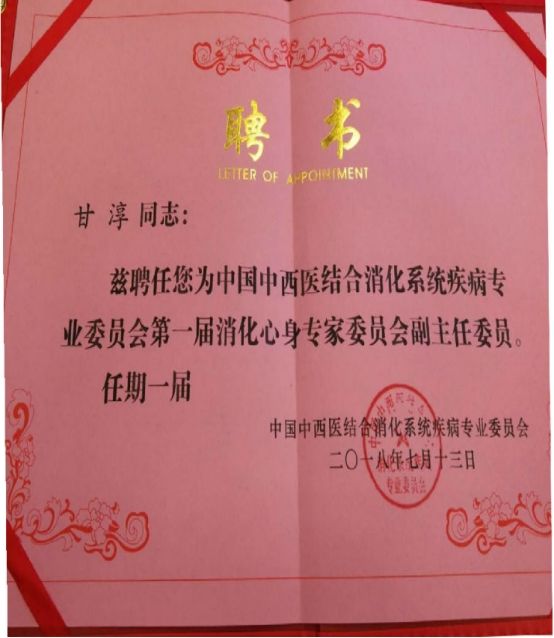 聘书
LETTER OF APPOINTMENT
甘 淳 同志：
兹聘任您为中国中西医结合消化系统疾病专
业委员会第一届消化心身专家委员会副主任委员。
任期一届
中国中西医结合消化系统疾病专业委员会
二〇一八年七月十三日
专业委员会